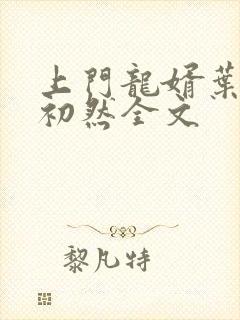 上門龍婿葉
初然全文
黎凡特